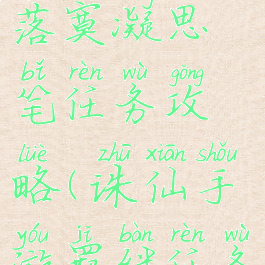 落寞凝思
bǐ rèn wù gōng
笔任务攻
lüè zhū xiān shǒu
略(诛仙手
yóu jī bàn rèn wù
游羁绊任务